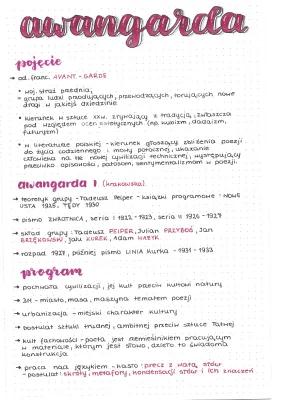 awangarda
pojęcie
→ od franc. AVANT - GARDE
* woj. straż przednia;
grupa ludzi przodujących, przewodzących, torujących nowe
drogi w jakiejś dziedzinie
* kierunek w sztuce XXw. zrywający z tradycją, zwłaszcza
pod względem ocen estetycznych (np. kubizm, dadaizm,
futuryzm)
* w literaturze polskiej - kierunek głoszący zbliżenie poezji
do życia codziennego i mowy potocznej, ukazanie
człowieka na tle nowej cywilizacji technicznej, występujący
przeciwko opisowości, patosowi, sentymentalizmowi w poezji.
awangarda I (krakowska)
→ teoretyk grupy - Tadeusz Peiper - książki programowe: NOWE
USTA 1925, TĘDY 1930
→ pismo ZWROTNICA, seria I 1922 - 1923, seria II 1926 - 1927
→ skład grupy: Tadeusz PEIPER, Julian PRZYBOŚ, Jan
BRZĘKOWSKI, Jalu KUREK, Adam WAŻYK
→ rozpad 1927, później pismo LINIA Kurka - 1931 - 1933
program
→ pochwała cywilizacji, jej kult przeciw kultowi natury
→ 3M - miasto, masa, maszyna tematem poezji
→ urbanizacja - miejski charakter kultury
→ postulat sztuki trudnej, ambitnej przeciw sztuce łatwej
→ kult fachowości - poeta jest rzemieślnikiem pracującym
w materiale, którym jest słowo, dzieło to świadoma
konstrukcja
→ praca nad językiem - hasło: precz z watą słów
- postulat: skróty i metafory, kondensacji słów i ich znaczeń